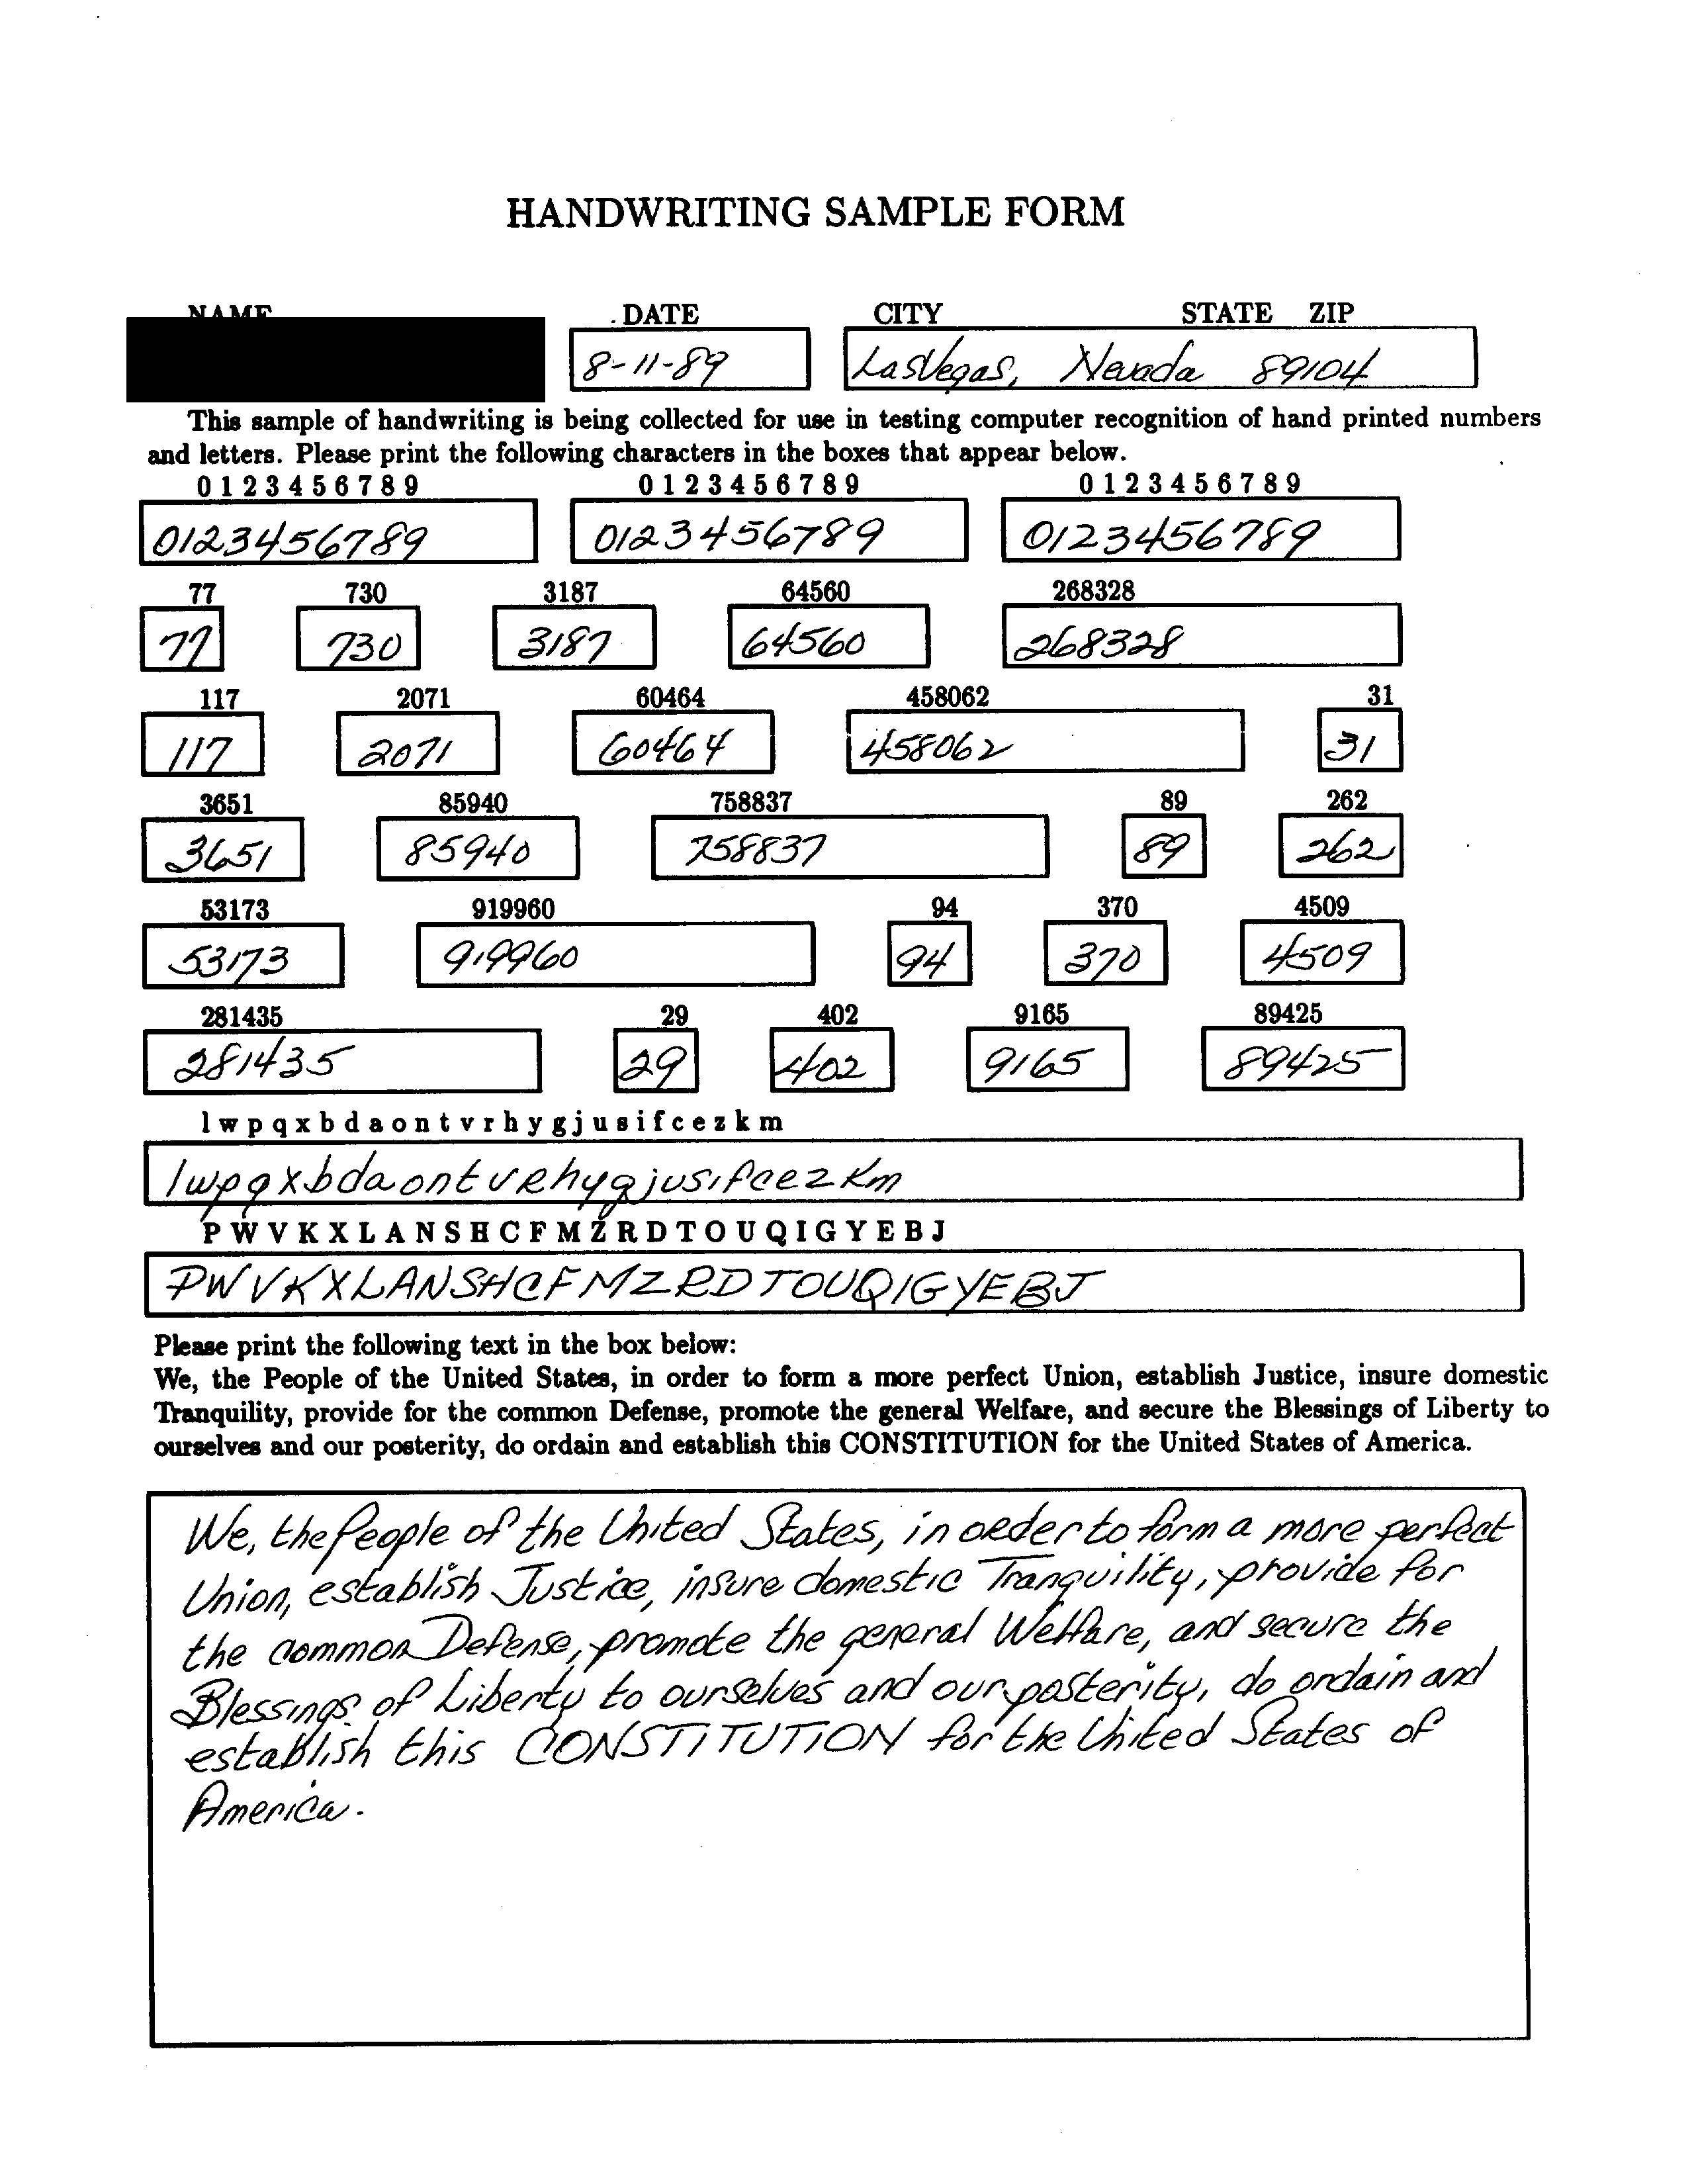 HANDWRITING SAMPLE FORM
NAME DATE CITY STATE ZIP
8-11-89 Las Vegas, Nevada 89104
This sample of handwriting is being collected for use in testing computer recognition of hand printed numbers
and letters. Please print the following characters in the boxes that appear below.
0 1 2 3 4 5 6 7 8 9 0 1 2 3 4 5 6 7 8 9 0 1 2 3 4 5 6 7 8 9
0123456789 0123456789 0123456789
77 730 3187 64560 268328
77 730 3187 64560 268328
117 2071 60464 458062 31
117 2071 60464 458062 31
3651 85940 758837 89 262
3651 85940 758837 89 262
53173 919960 94 370 4509
53173 919960 94 370 4509
281435 29 402 9165 89425
281435 29 402 9165 89425
l w p q x b d a o n t v r h y g j u s i f c e z k m
lwpqxbdaontvRhygjusifcezkm
P W V K X L A N S H C F M Z R D T O U Q I G Y E B J
PWVKXLANSHCFMZRDTOUQIGYEBJ
Please print the following text in the box below:
We, the People of the United States, in order to form a more perfect Union, establish Justice, insure domestic
Tranquility, provide for the common Defense, promote the general Welfare, and secure the Blessings of Liberty to
ourselves and our posterity, do ordain and establish this CONSTITUTION for the United States of America.
We, the People of the United States, in order to form a more perfect
Union, establish Justice, insure domestic Tranquility, provide for
the common Defense, promote the general Welfare, and secure the
Blessings of Liberty to ourselves and our posterity, do ordain and
establish this CONSTITUTION for the United States of
America.